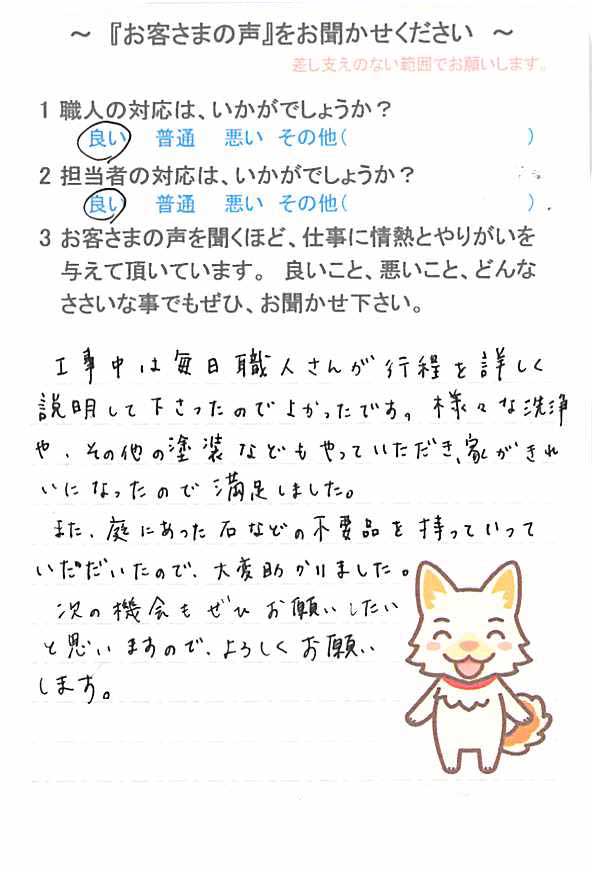 ～ 『お客さまの声』をお聞かせください ～
差し支えのない範囲でお願いします。
1 職人の対応は、いかがでしょうか？
良い 普通 悪い その他( )
2 担当者の対応は、いかがでしょうか？
良い 普通 悪い その他( )
3 お客さまの声を聞くほど、仕事に情熱とやりがいを
与えて頂いています。 良いこと、悪いこと、どんな
ささいな事でもぜひ、お聞かせ下さい。
工事中は毎日職人さんが行程を詳しく
説明して下さったのでよかったです。様々な洗浄
や、その他の塗装などもやっていただき、家がきれ
いになったので満足しました。
また、庭にあった石などの不要品を持っていって
いただいたので、大変助かりました。
次の機会もぜひお願いしたい
と思いますので、よろしくお願い
します。